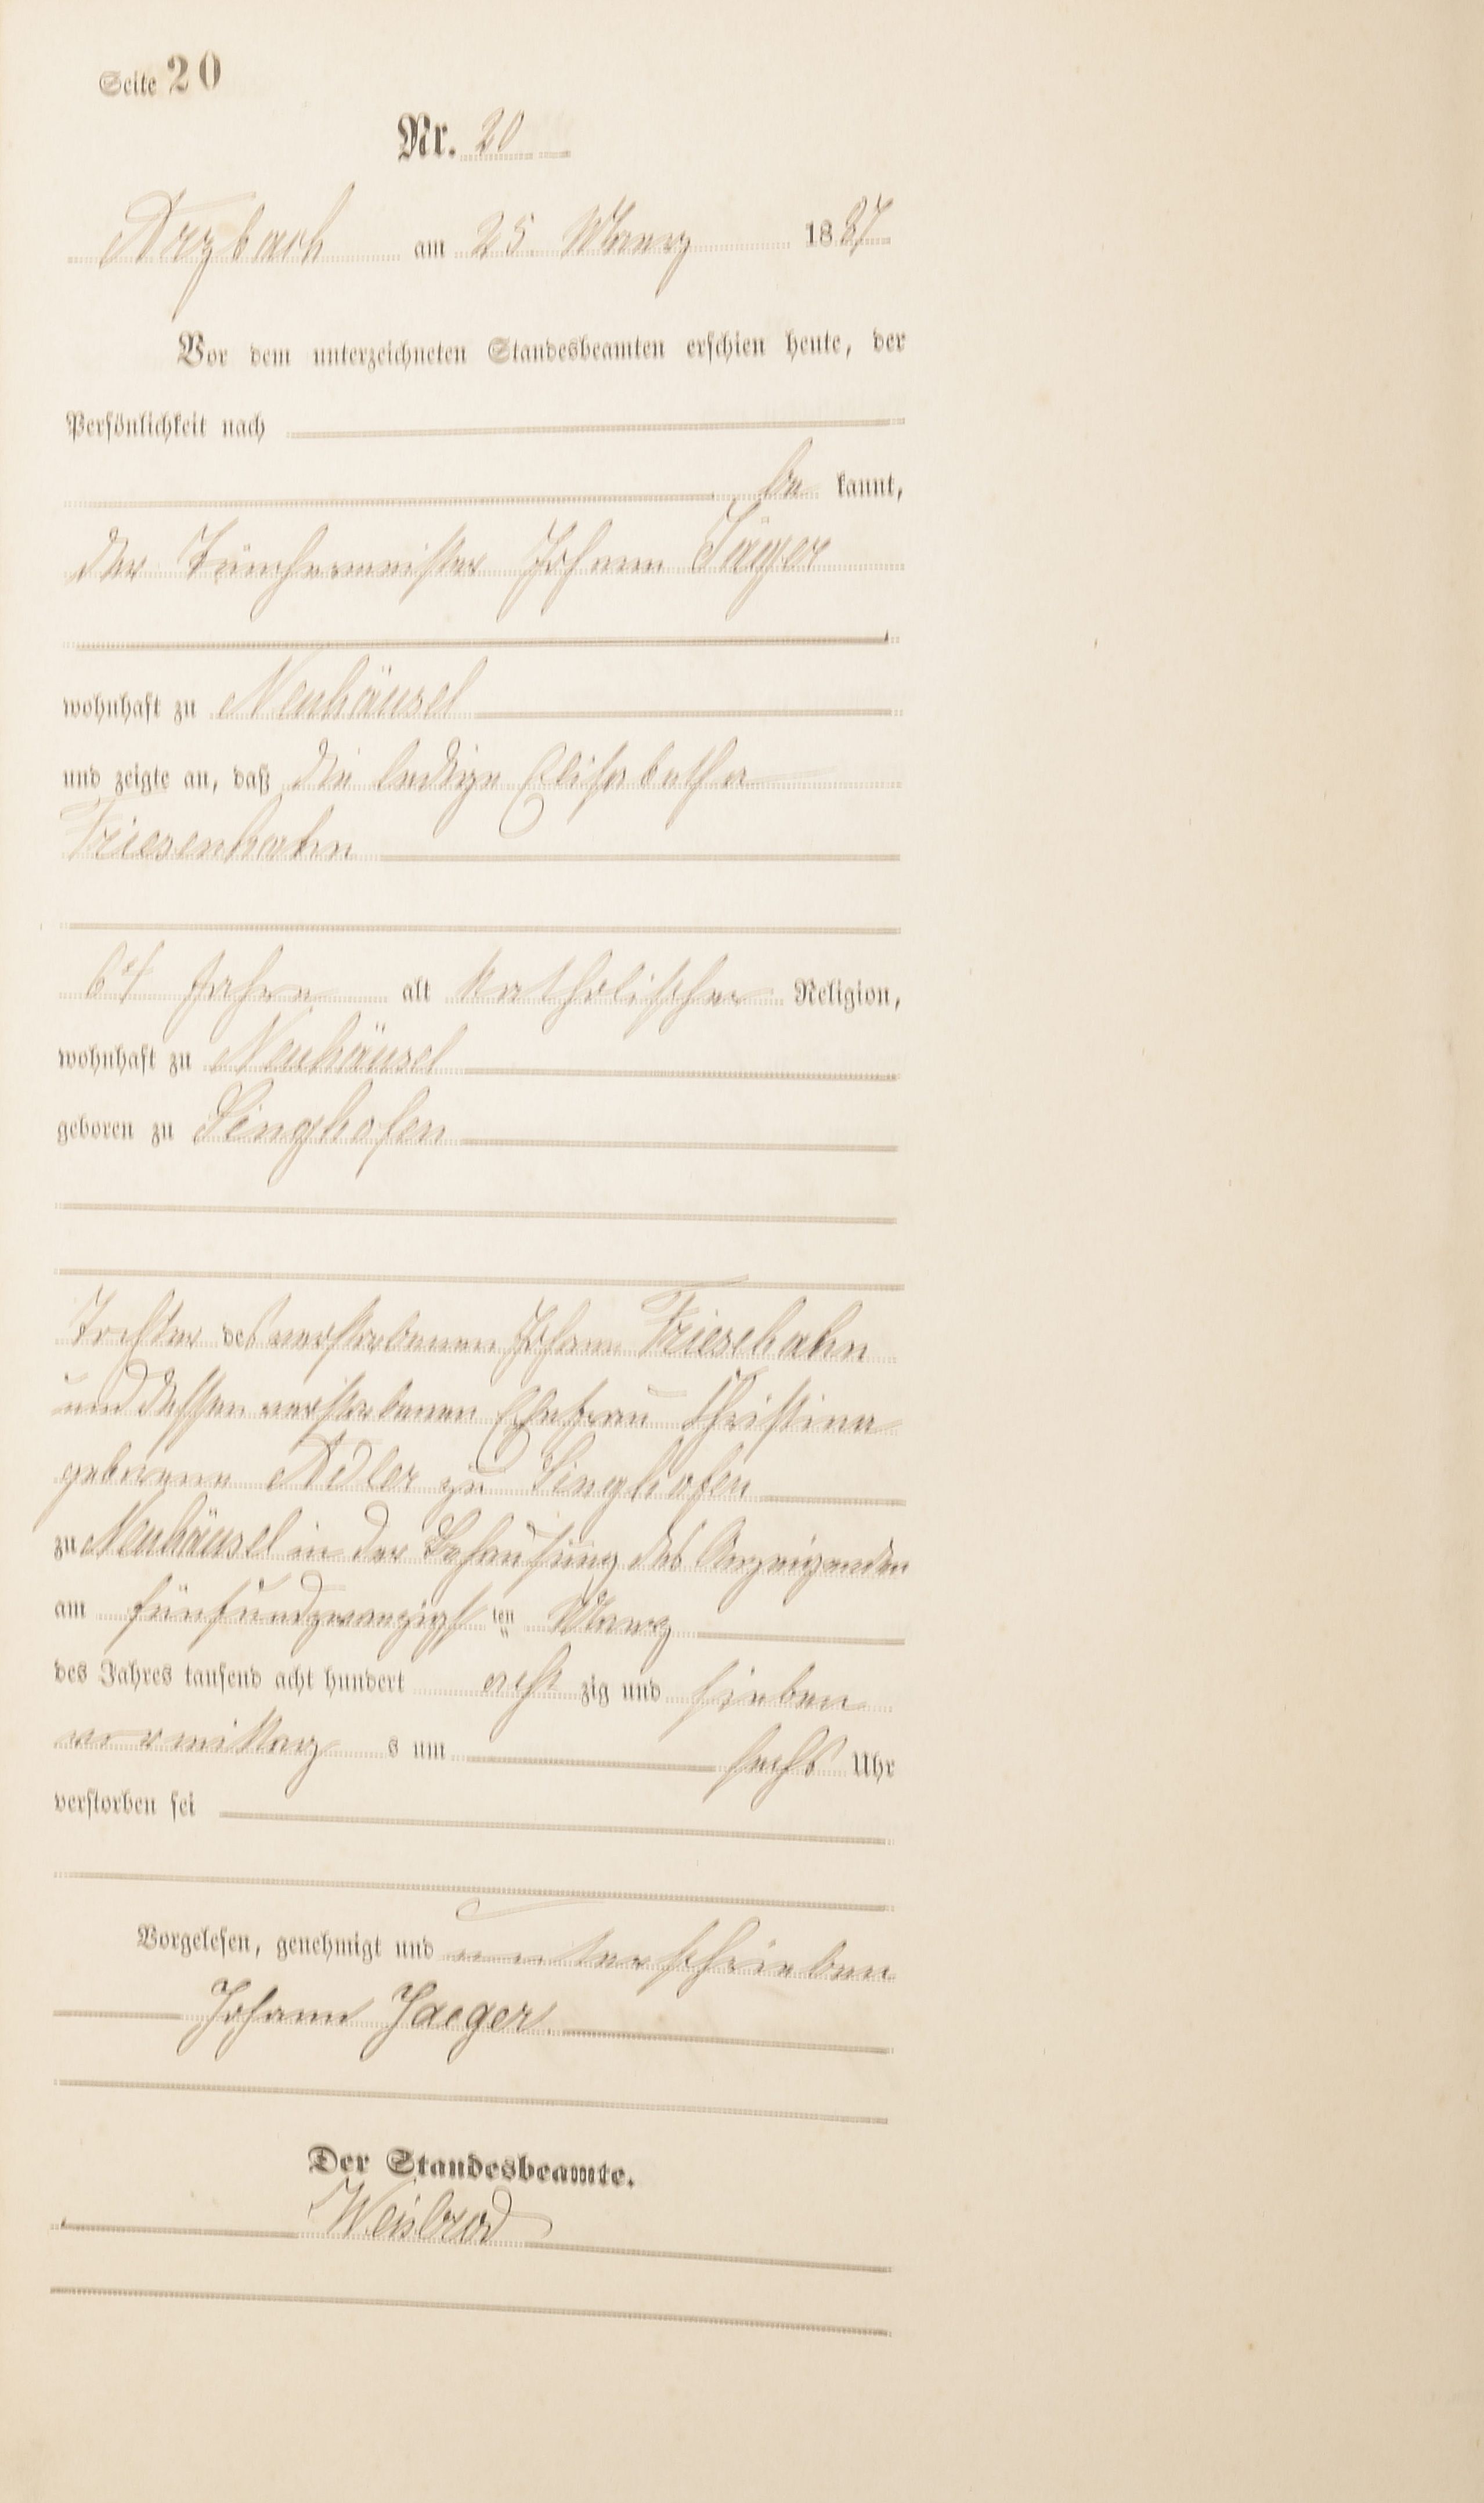 Seite 20
Nr. 20
Arzbach am 25. Maerz 1887
Vor dem unterzeichneten Standesbeamten erschien heute, der
Persönlichkeit nach
be kannt,
der Tünchermeister Johann Jäger
wohnhaft zu Neuhäusel
und zeigte an, daß die ledige Elisabetha
Friesenhahn
64 Jahre alt katholischer Religion,
wohnhaft zu Neuhäusel
geboren zu Singhofen
Tochter des verstorbenen Johann Friesehahn
und dessen verstorbenen Ehefrau Christina
geborene Adler zu Singhofen
zu Neuhäusel in der Behausung des Anzeigenden
am fünfundzwanzigsten Maerz
des Jahres tausend acht hundert acht zig und sieben
vormittag s um sechs Uhr
verstorben sei
Vorgelesen, genehmigt und unterschrieben
Johann Jaeger.
Der Standesbeamte.
Weisbrod